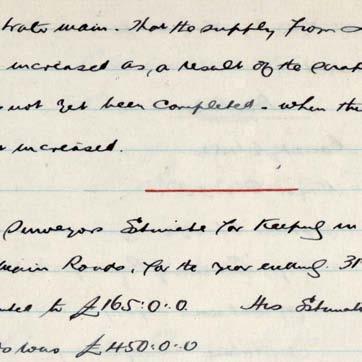 water main. That the supply from
increased as, a result of the
not yet been completed - when the
increased.
Surveyors Estimate for Keeping in
Main Roads, for the year ending 31
to £165:0:0 His Estimate
was £450:0:0